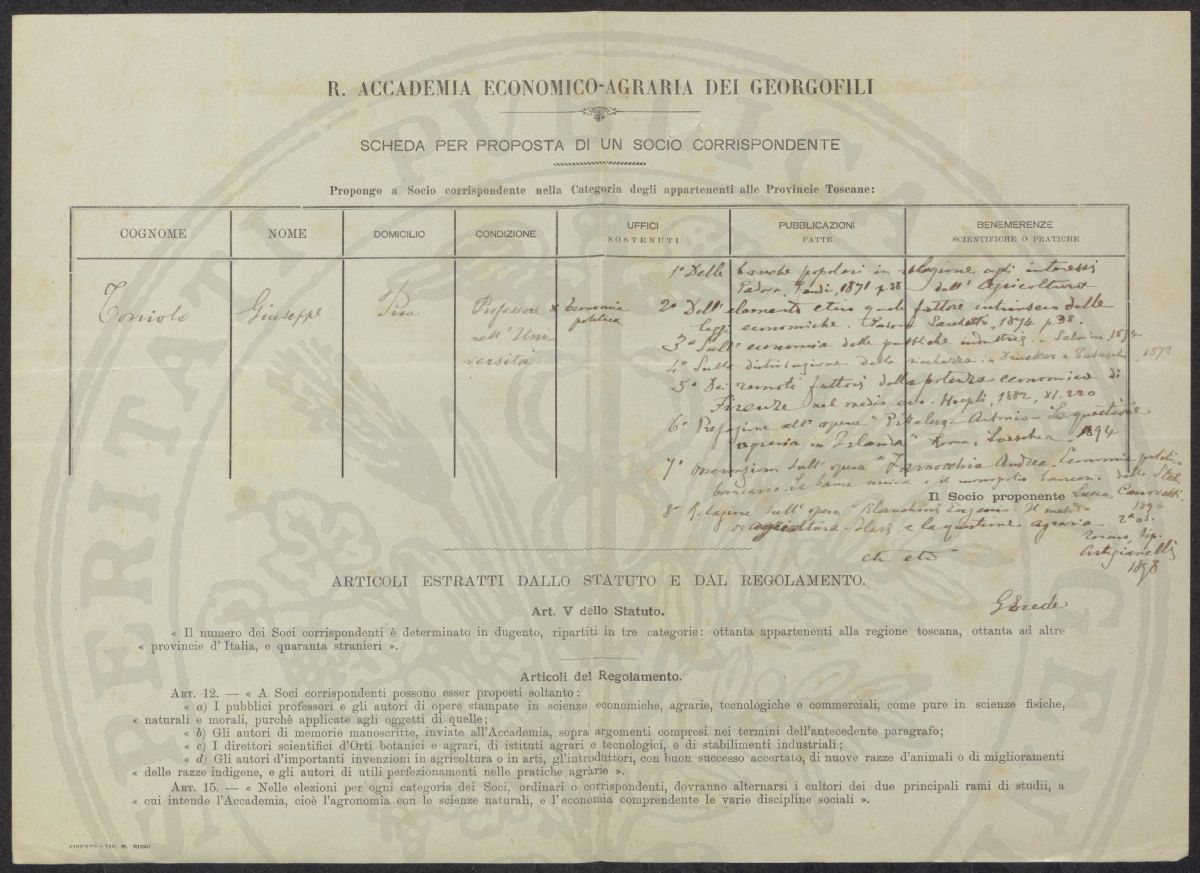 R. ACCADEMIA ECONOMICO-AGRARIA DEI GEORGOFILI
SCHEDA PER PROPOSTA DI UN SOCIO CORRISPONDENTE
Propongo a Socio corrispondente nella Categoria degli appartenenti alle Provincie Toscane:
COGNOME NOME DOMICILIO CONDIZIONE UFFICI SOSTENUTI PUBBLICAZIONI FATTE BENEMERENZE SCIENTIFICHE O PRATICHE
Toniolo Giuseppe Pisa Professore x Economia
politica
nell' Uni
versità
1° Delle banche popolari in relazione agli interessi
dell' Agricoltura
Padova, 1871 p. 38
2° Dell' elemento etico quale fattore intrinseco delle
leggi economiche. Padova Sacchetto, 1874 p. 38.
3° Sull' economia delle pubbliche industrie. 1874
4° Sulla distribuzione della ricchezza. Drucker e Tedeschi 1878
5° Dei remoti fattori della potenza economica di
Firenze nel medio evo. Hoepli, 1882, XI. 220
6° Prefazione all' opera " Antonio - La questione
agraria in Irlanda" Roma, Loescher 1894
7° Osservazioni sull' opera " Andrea. Economia politi-
bancario. La banca unica e il monopolio bancario. dello Stat.
Il Socio proponente
Lucca, Canovetti,
1890
8° Relazione sull' opera "Blanchini Eugenio. Il metodo
e la questione agraria. 2a ed.
Torino, tip.
Artigianelli
1898
ARTICOLI ESTRATTI DALLO STATUTO E DAL REGOLAMENTO.
Art. V dello Statuto.
« Il numero dei Soci corrispondenti è determinato in dugento, ripartiti in tre categorie: ottanta appartenenti alla regione toscana, ottanta ad altre
« provincie d'Italia, e quaranta stranieri ».
Articoli del Regolamento.
ART. 12. — « A Soci corrispondenti possono esser proposti soltanto:
« a) I pubblici professori e gli autori di opere stampate in scienze economiche, agrarie, tecnologiche e commerciali, come pure in scienze fisiche,
« naturali e morali, purchè applicate agli oggetti di quelle;
« b) Gli autori di memorie manoscritte, inviate all'Accademia, sopra argomenti compresi nei termini dell'antecedente paragrafo;
« c) I direttori scientifici d'Orti botanici e agrari, di istituti agrari e tecnologici, e di stabilimenti industriali;
« d) Gli autori d'importanti invenzioni in agricoltura o in arti, gl'introduttori, con buon successo accertato, di nuove razze d'animali o di miglioramenti
« delle razze indigene, e gli autori di utili perfezionamenti nelle pratiche agrarie ».
ART. 15. — « Nelle elezioni per ogni categoria dei Soci, ordinari o corrispondenti, dovranno alternarsi i cultori dei due principali rami di studii, a
« cui intende l'Accademia, cioè l'agronomia con le scienze naturali, e l'economia comprendente le varie discipline sociali ».
FIRENZE - TIP. M. RICCI